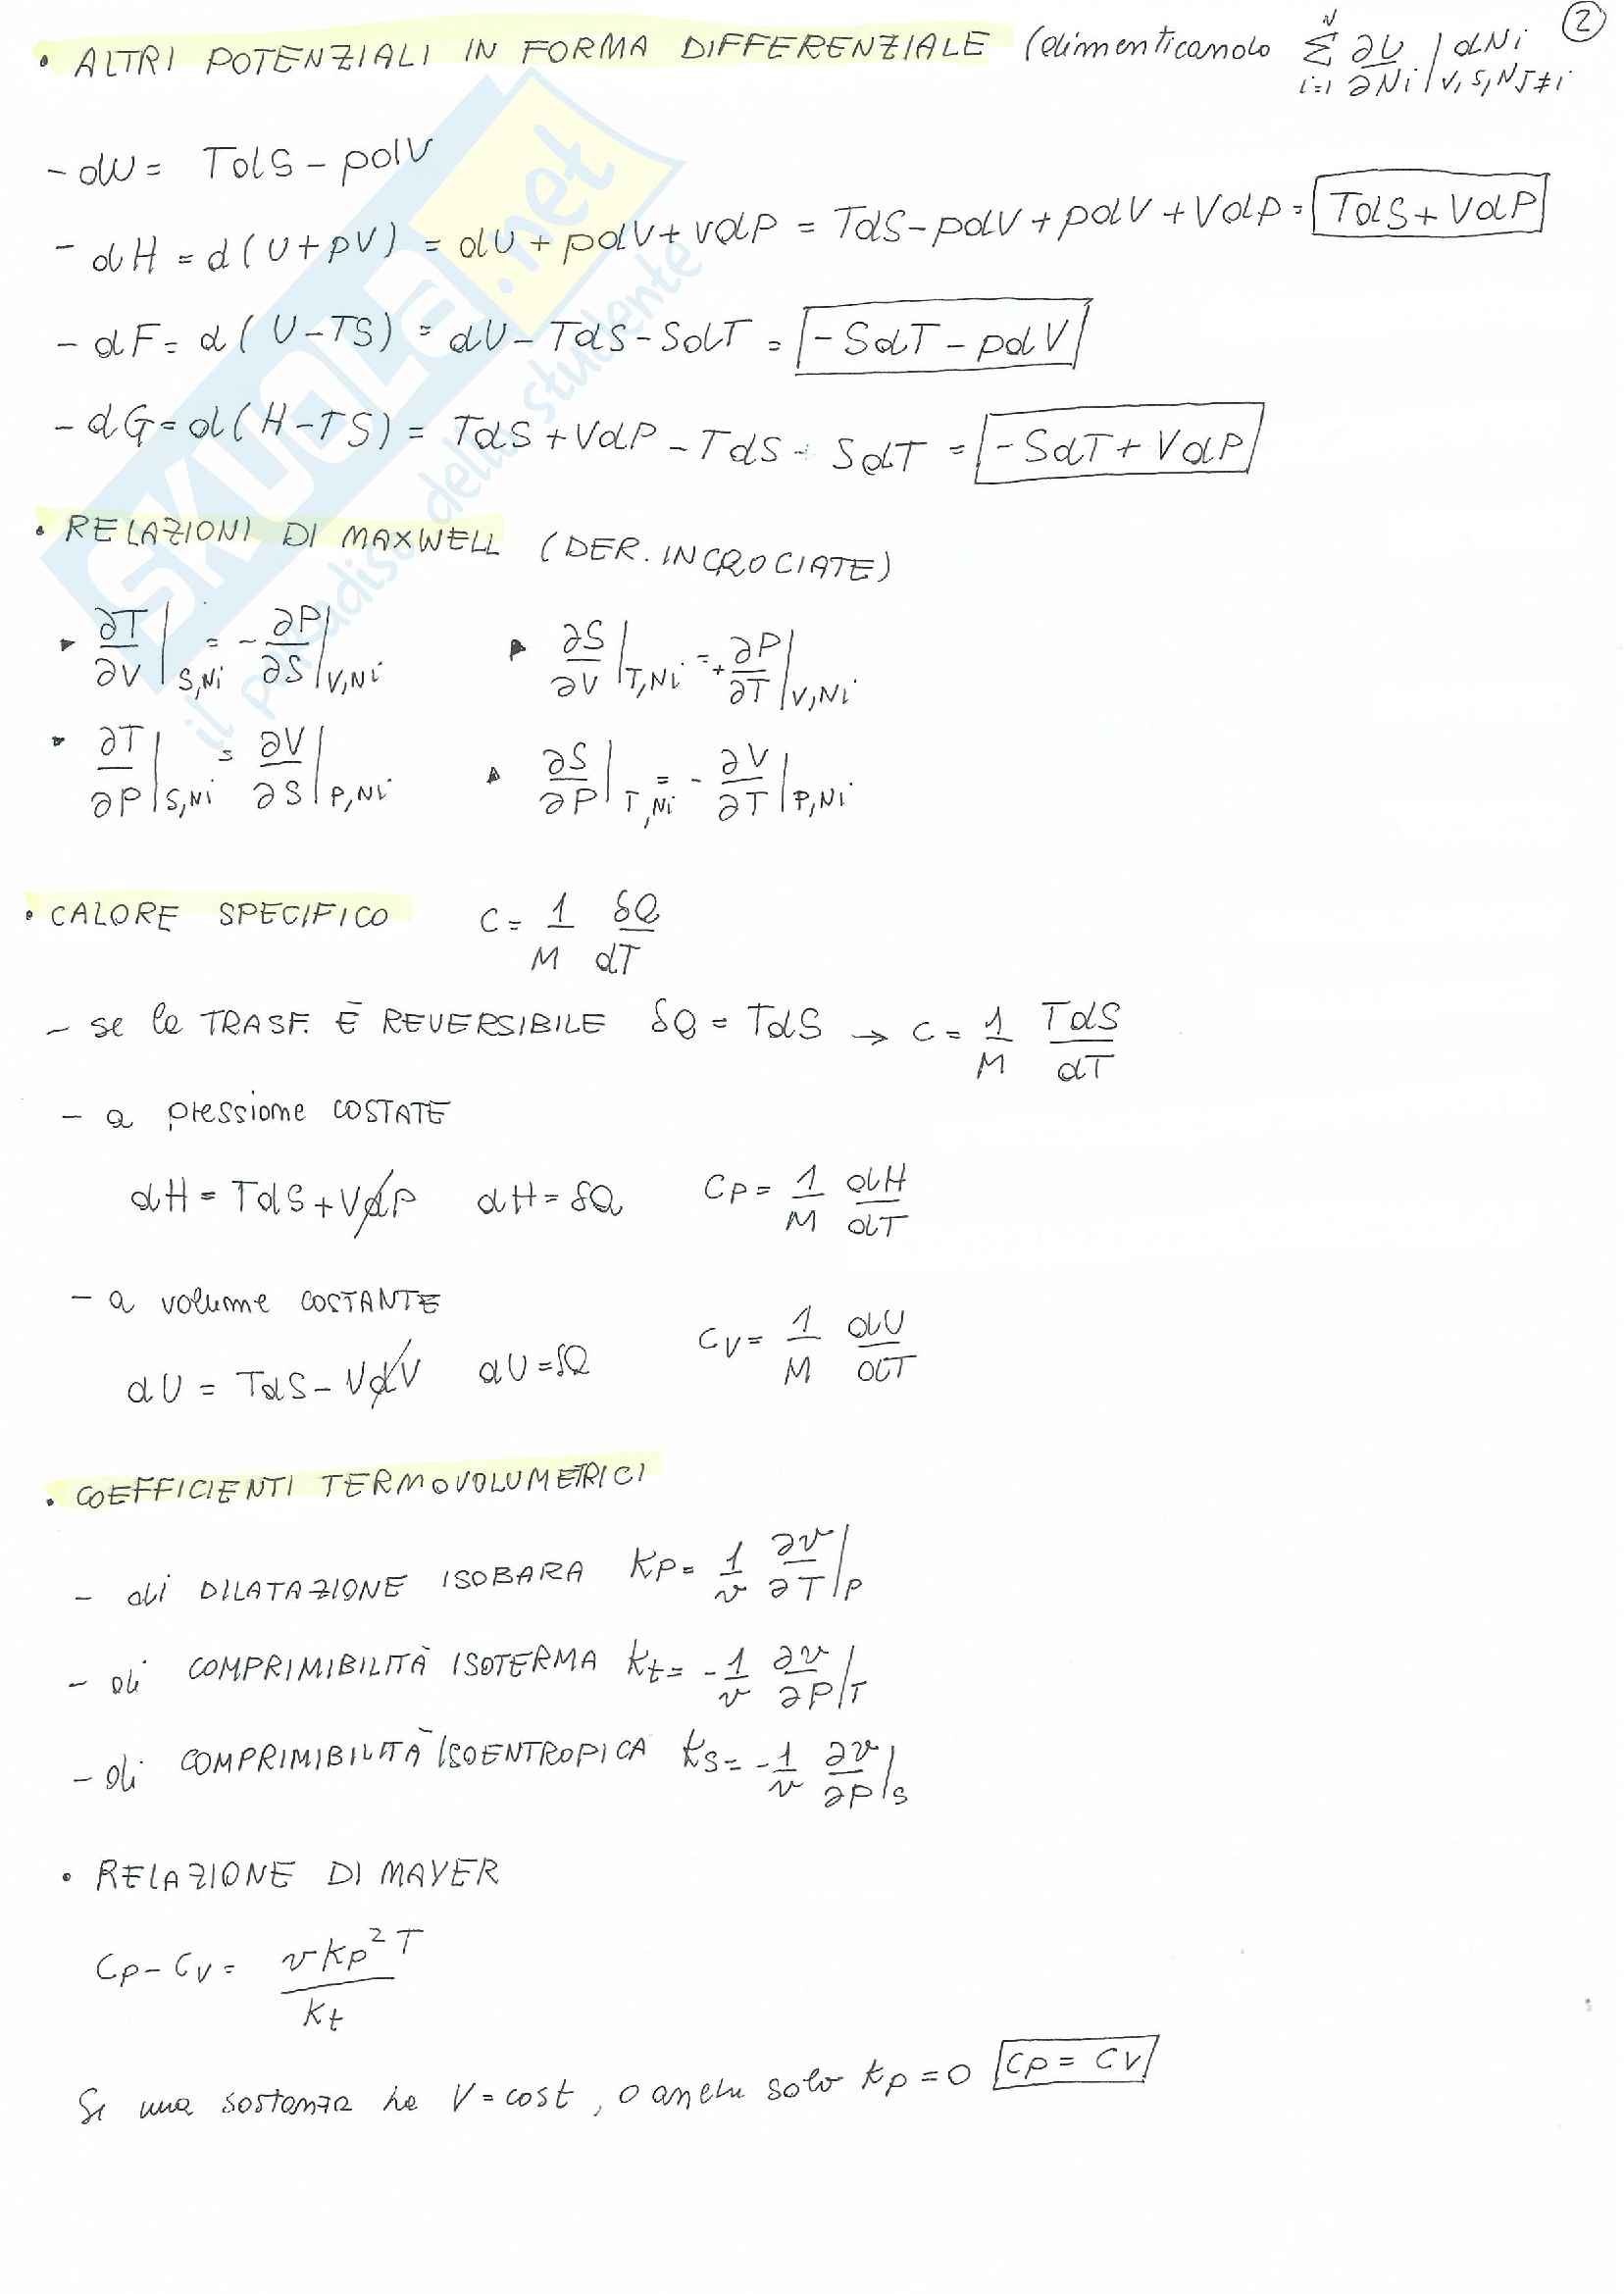 • ALTRI POTENZIALI IN FORMA DIFFERENZIALE (dimenticando Σ_{i=1}^{N} ∂U/∂Ni |_{V,S,Nj≠i} dNi ②
- dU = TdS - pdV
- dH = d(U+pV) = dU + pdV + VdP = TdS - pdV + pdV + VdP = TdS + VdP
- dF = d(U-TS) = dU - TdS - SdT = -SdT - pdV
- dG = d(H-TS) = TdS + VdP - TdS - SdT = -SdT + VdP
• RELAZIONI DI MAXWELL (DER. INCROCIATE)
▸ ∂T/∂V |_{S,Ni} = - ∂P/∂S |_{V,Ni} ▸ ∂S/∂V |_{T,Ni} = + ∂P/∂T |_{V,Ni}
▸ ∂T/∂P |_{S,Ni} = ∂V/∂S |_{P,Ni} ▸ ∂S/∂P |_{T,Ni} = - ∂V/∂T |_{P,Ni}
• CALORE SPECIFICO C = 1/M δQ/dT
- se la TRASF. È REVERSIBILE δQ = TdS → C = 1/M TdS/dT
- a pressione COSTATE
dH = TdS + VdP dH = δQ CP = 1/M dH/dT
- a volume COSTANTE
dU = TdS - VdV dU = δQ CV = 1/M dU/dT
• COEFFICIENTI TERMOVOLUMETRICI
- di DILATAZIONE ISOBARA KP = 1/v ∂v/∂T |_P
- di COMPRIMIBILITÀ ISOTERMA Kt = - 1/v ∂v/∂P |_T
- di COMPRIMIBILITÀ ISOENTROPICA KS = - 1/v ∂v/∂P |_S
• RELAZIONE DI MAYER
Cp - Cv = v Kp² T / Kt
Se una sostanza ha V = cost, o anche solo Kp = 0 Cp = Cv
SKUOLA.net
il paradiso dello studente